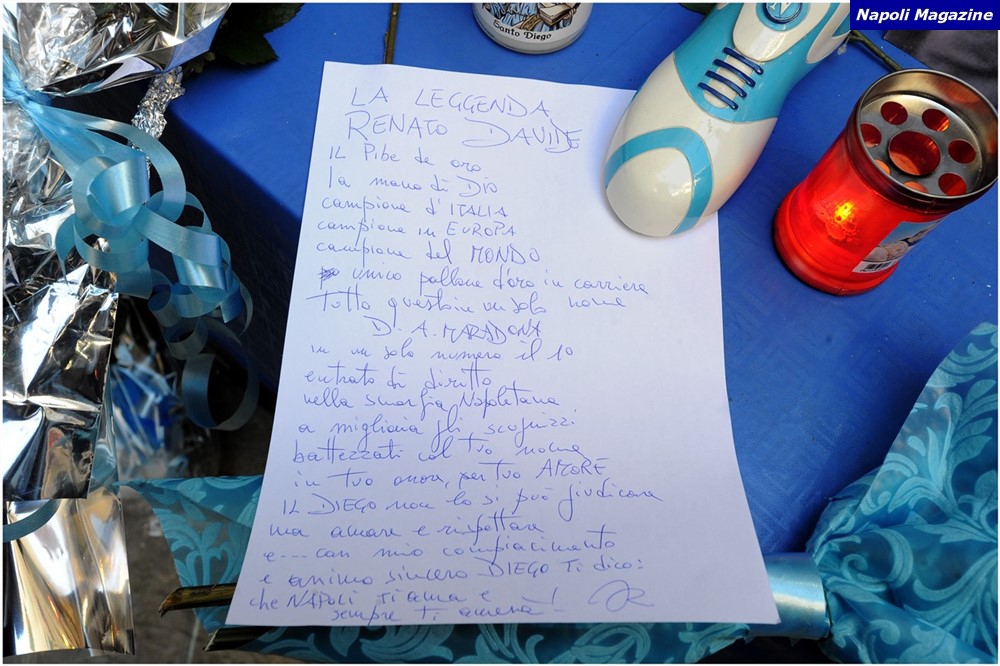 Napoli Magazine
Santo Diego
LA LEGGENDA
RENATO DAVIDE
IL Pibe de oro
la mano di DIO
campione d'ITALIA
campione in EUROPA
campione del MONDO
unico pallone d'oro in carriera
Tutto questo in un solo nome
D. A. MARADONA
in un solo numero il 10
entrato di diritto
nella smorfia Napoletana
a migliaia gli scognizzi
battezzati col tuo nome
in tuo onore, per tuo AMORE
IL DIEGO non lo si può giudicare
ma amare e rispettare
e.... con mio compiacimento
e animo sincero DIEGO Ti dico:
che NAPOLI Ti ama e
sempre ti amerà!